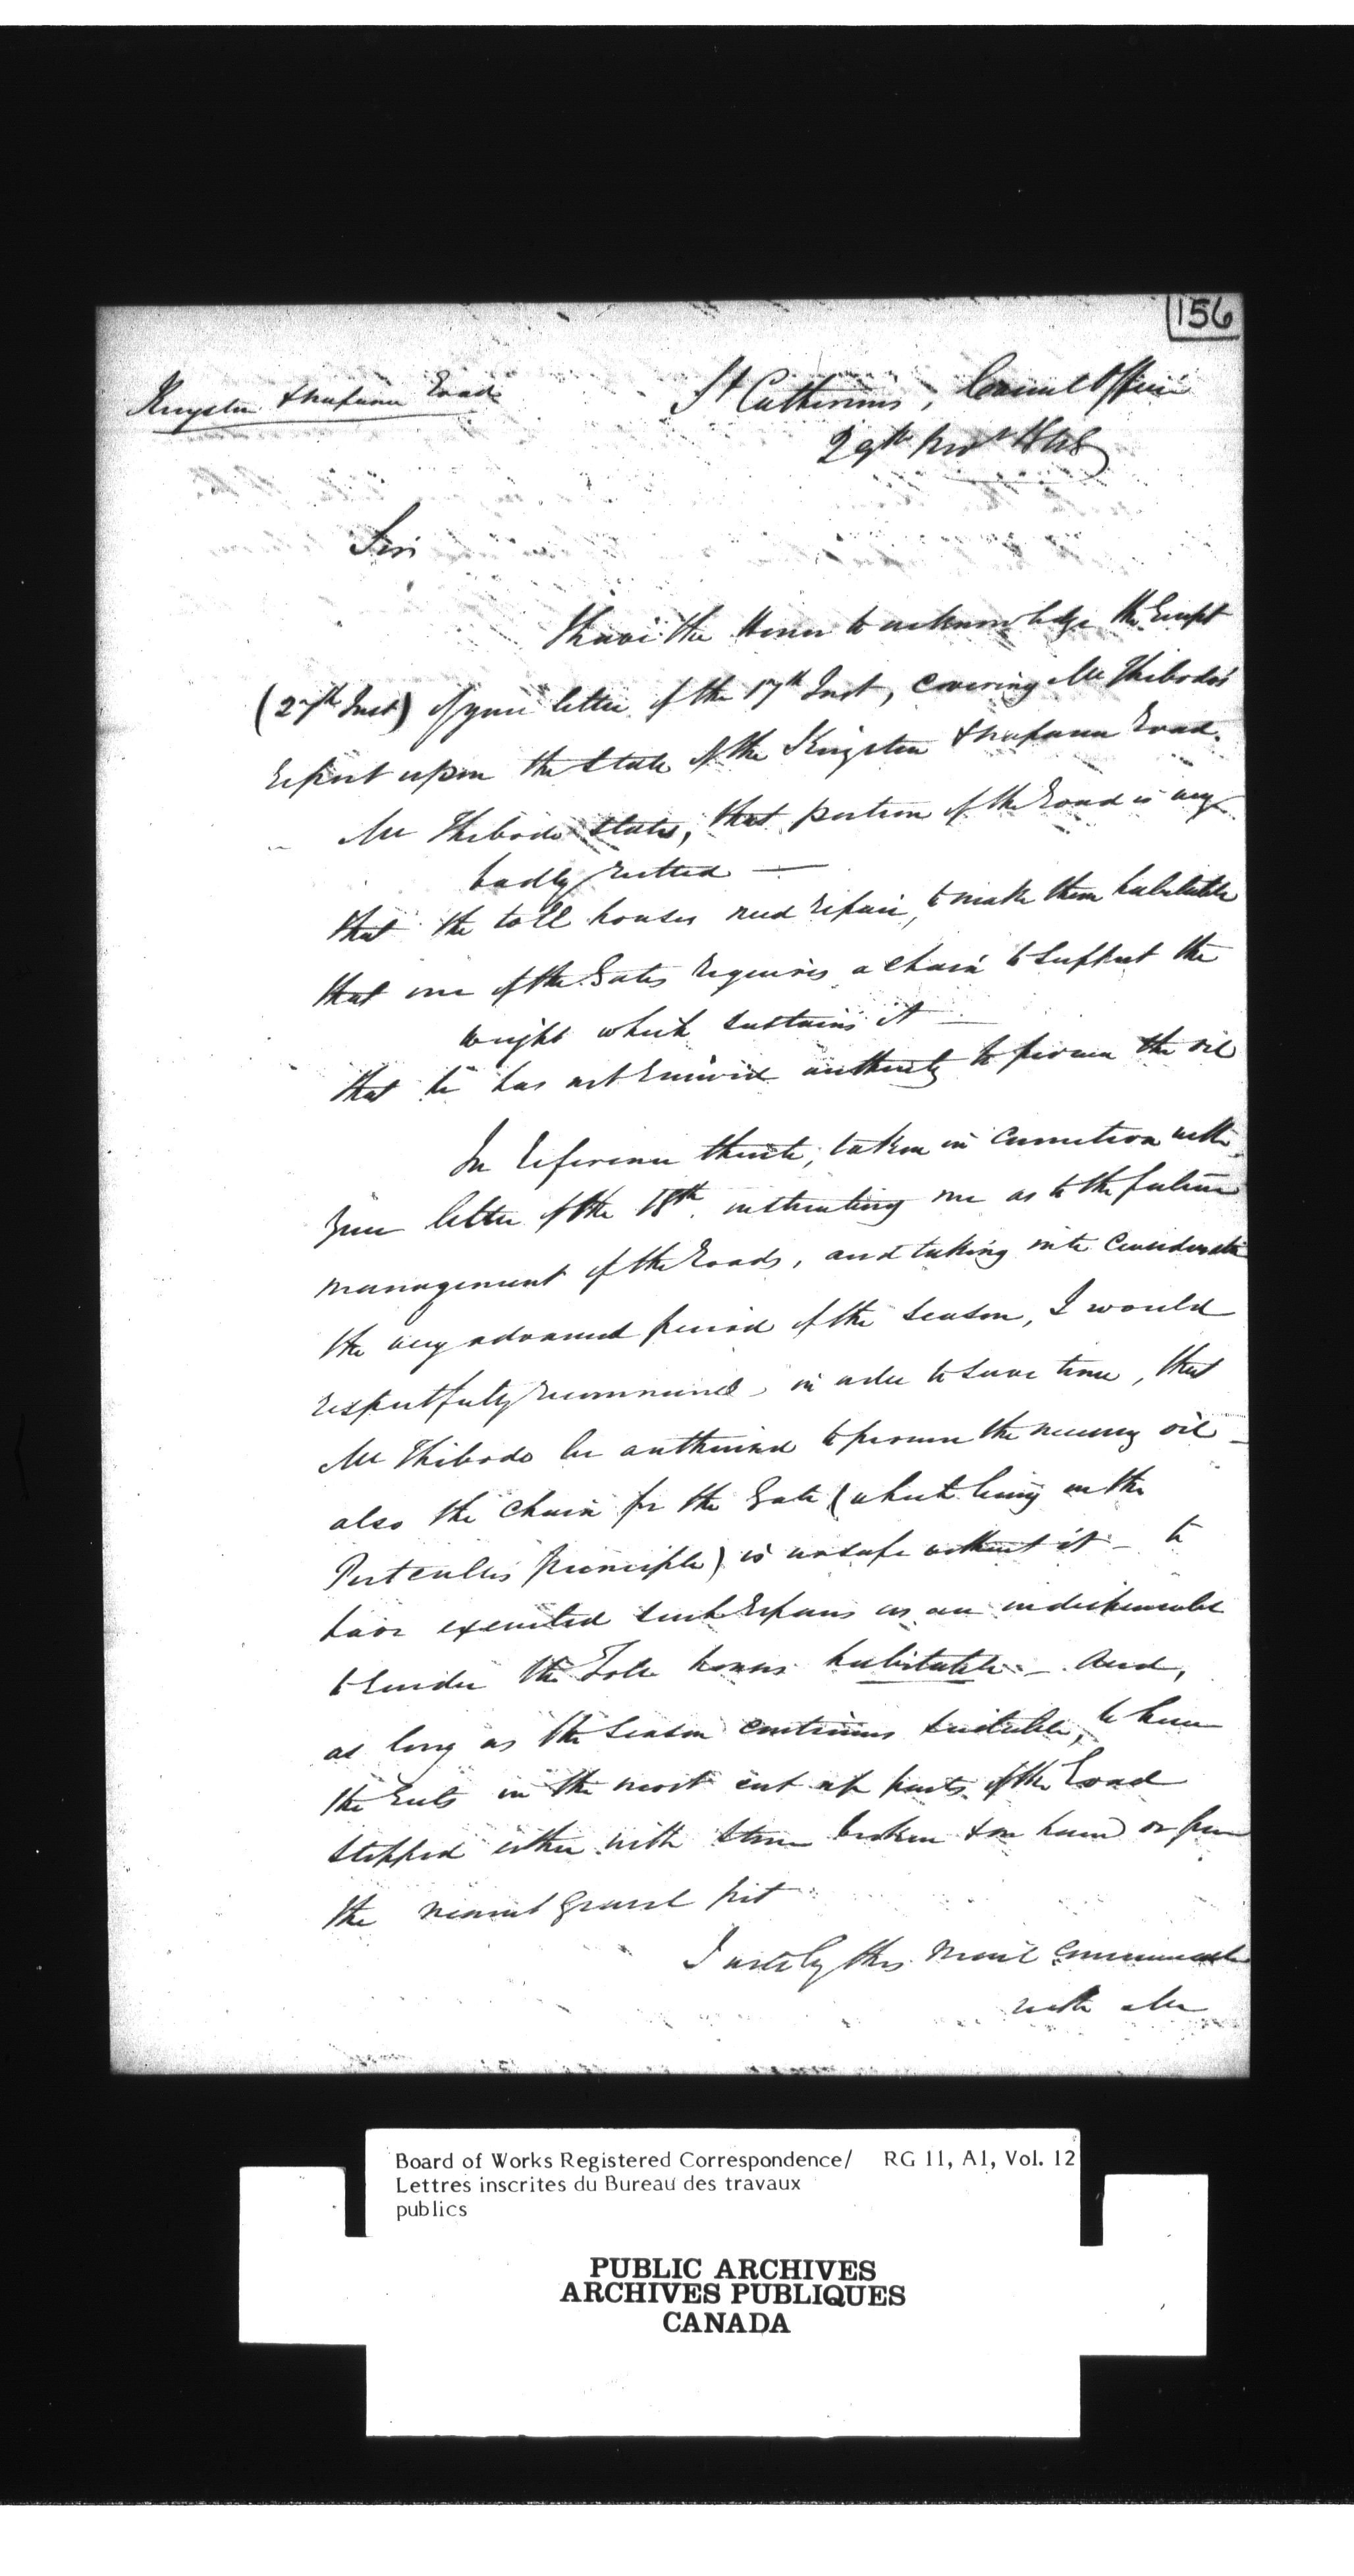 156
Kingston & Napanee Road
St Catherines, Canal Office
29th Novr 1848
Sir
I have the Honor to acknowledge the Receipt
(27th Inst) of your letter of the 17th Inst, covering Mr Thibodo's
Report upon the State of the Kingston & Napanee Road.
Mr Thibodo states, that portion of the Road is very
badly rutted —
that the toll houses need repair, to make them habitable
that one of the Gates requires a chain to support the
weight which sustains it —
that he has not received authority to procure the oil
In reference thereto, taken in connection with
your letter of the 18th instructing me as to the future
management of the Roads, and taking into consideration
the very advanced period of the season, I would
respectfully recommend, in order to save time, that
Mr Thibodo be authorised to procure the necessary oil —
also the chain for the Gate (which being on the
Portcullis principle) is unsafe without it — to
have executed such repairs as are indispensable
to render the Toll houses habitable — and,
as long as the season continues suitable, to have
the Ruts in the most cut up parts of the Road
stopped either with stone broken & on hand or from
the nearest gravel pit
I will by this mail communicate
with Mr
Board of Works Registered Correspondence/ RG 11, A1, Vol. 12
Lettres inscrites du Bureau des travaux
publics
PUBLIC ARCHIVES
ARCHIVES PUBLIQUES
CANADA